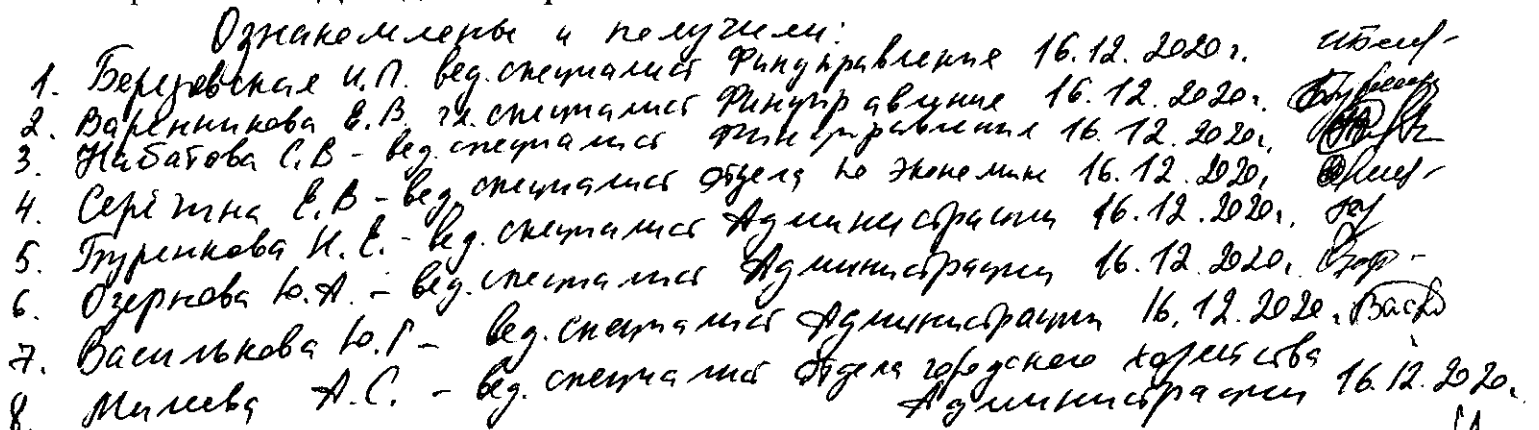 Ознакомлены и получили:
1. Березовская И.П. вед. специалист Финуправления 16.12.2020г.
2. Варенникова Е.В. гл. специалист Финуправление 16.12.2020г.
3. Набатова С.В - вед. специалист Финуправления 16.12.2020г.
4. Серёгина Е.В - вед. специалист отдела по экономике 16.12.2020г.
5. Туренкова Н.Е. - вед. специалист Администрации 16.12.2020г.
6. Озернова Ю.А. - вед. специалист Администрации 16.12.2020г.
7. Василькова Ю.Г - вед. специалист Администрации 16.12.2020г.
8. А.С. - вед. специалист отдела городского хозяйства
Администрации 16.12.2020г.